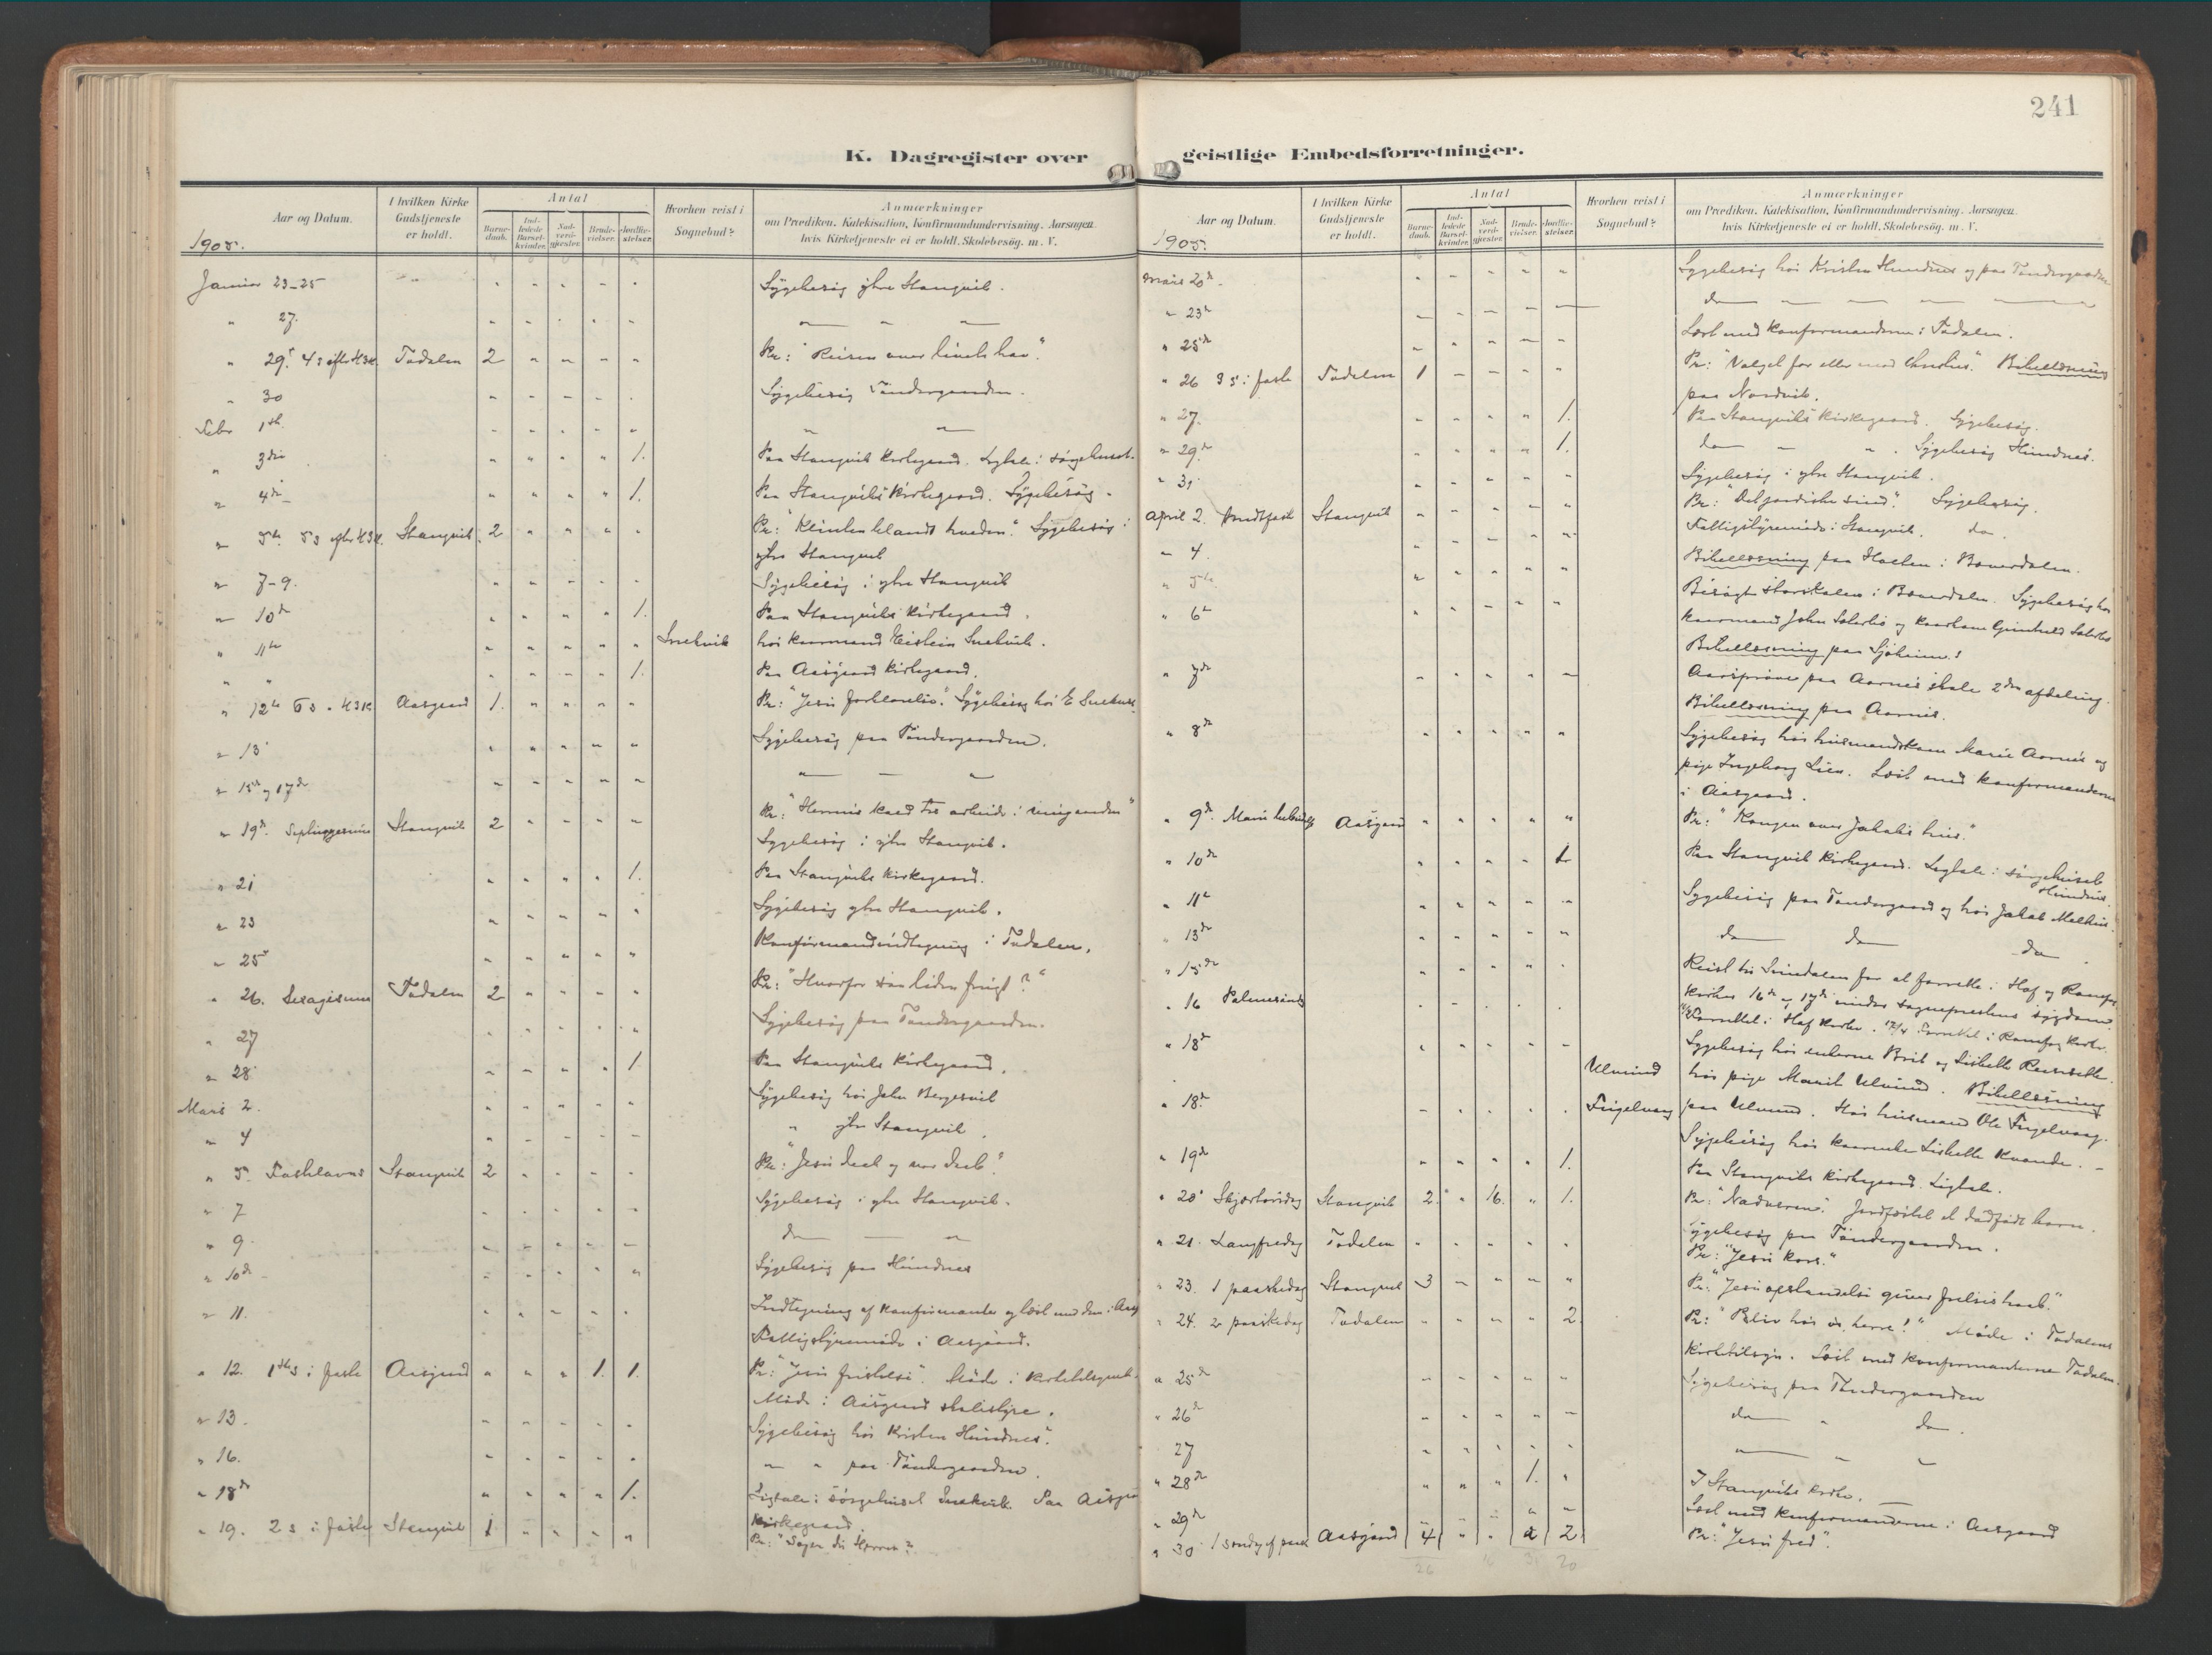 241
K. Dagregister over
geistlige Embedsforretninger.
Aar og Datum. I hvilken Kirke Gudstjeneste er holdt. Antal Barnedaab. Indledede Barselkvinder. Nadverdgjester. Brudevielser. Jordfæstelser. Hvorhen reist i Sognebud? Anmærkninger om Prædiken, Katekisation, Konfirmandundervisning, Aarsagen, hvis Kirketjeneste ei er holdt, Skolebesög, m. V.
1905.
Januar 23-25 Sygebesøg ytre Stangvik.
" 27.
" 29. 4 s efter H3K. Todalen 2 Pr: "Reisen over livets hav".
" 30 Sygebesøg Töndergaarden.
Febr 1ste
" 3die 1. Paa Stangvik kirkegaard. Ligtale i sörgehuset.
" 4de 1. Paa Stangviks kirkegaard. Sygebesøg.
" 5te 5 s efter H3K. Stangvik 2 Pr: "Klinten blandt hveden." Sygebesøg i
ytre Stangvik
" 7-9. Sygebesøg i ytre Stangvik
" 10de 1. Paa Stangviks kirkegaard.
" 11te hos kaarmand
" " 1. Paa Aasgaard kirkegaard.
" 12te 6 s. H3K Aasgaard 1. Pr: "Jesu forklarelse." Sygebesøg hos E
" 13 Sygebesøg paa Töndergaarden.
" 15de og 17de
" 19de Septuagesima Stangvik 2 Pr: "Herrens kald til arbeide i vingaarden"
Sygebesøg i ytre Stangvik.
" 21 1. Paa Stangviks kirkegaard.
" 23 Sygebesøg ytre Stangvik.
" 25 Konfirmandindtegning i Todalen.
" 26. Sexagesima Todalen 2 Pr: "Hvorfor saa liden frugt?"
" 27 Sygebesøg paa Töndergaarden.
" 28 1 Paa Stangviks kirkegaard.
Mars 2. Sygebesøg hos John Bergesvik
" 4 " ytre Stangvik.
" 5. Fastelavns Stangvik 2 Pr: "Jesu daab og vor daab".
" 7 Sygebesøg i ytre Stangvik.
" 9 do
" 10de Sygebesøg paa Hundnes
" 11. Indtegning af konfirmanter og læst med dem i Aasg
Fattigstyremöde i Aasgaard.
" 12. 1ste s i faste Aasgaard 1. 1. Pr: "Jesu fristelse". Möde i kirketilsynet.
" 13. Möde i Aasgaard skolestyre.
" 16. Sygebesøg hos Kristen Hundnes.
" " paa Töndergaarden.
" 18de 1. Ligtale i sörgehuset Paa Aasgaa
kirkegaard
" 19. 2 s i faste Stangvik 1 Pr: "Søger du Herren?"
Aar og Datum. I hvilken Kirke Gudstjeneste er holdt. Antal Barnedaab. Indledede Barselkvinder. Nadverdgjester. Brudevielser. Jordfæstelser. Hvorhen reist i Sognebud? Anmærkninger om Prædiken, Katekisation, Konfirmandundervisning, Aarsagen, hvis Kirketjeneste ei er holdt, Skolebesög, m. V.
1905.
Mars 20de Sygebesøg hos Kristen Hundnes og paa Töndergaarden
" 23de do
" 25de Læst med konfirmanderne i Todalen.
" 26 3 s i faste Todalen 1 Pr: "Valget for eller mod Christus." Bibellæsning
paa Nordvik.
" 27. 1. Paa Stangviks kirkegaard. Sygebesøg.
" 29de 1. do Sygebesøg Hundnes.
" 31 Sygebesøg i ytre Stangvik.
April 2. Midtfaste Stangvik Pr: "Det jordiske sind". Sygebesøg.
" 4. Fattigstyremöde i Stangvik. do.
" 5te Bibellæsning paa Holten i Bæverdalen.
" 6te Besøgt storskolen i Bæverdalen. Sygebesøg hos
kaarmand John og kaarkone
Bibellæsning paa Sjöheim.
" 7de Aarspröve paa Aarnes skole 2den afdeling.
Bibellæsning paa Aarnes.
" 8de Sygebesøg hos husmandskone Marie Aarnes og
pige Ingeborg Lien. Læst med konfirmanderne
i Aasgaard.
" 9de Marie bebud Aasgaard Pr: "Kongen over Jakobs hus."
" 10de 1 Paa Stangvik kirkegaard. Ligtale i sörgehuset
Hundnes.
" 11te Sygebesøg paa Töndergaard og hos Jakob
" 13de do do do
" 15de Reist til Sundalen for at forrette i Hof og Romfo
" 16 Palmesønd kirker 16de og 17de under sogneprestens sygdom
16/4 Forrettet i Hof kirke. 17/4 Forrettet i Romfo kirke.
" 18de Sygebesøg hos enkerne Brit og Lisbeth
Ulvund hos pige Marit Ulvund. Bibellæsning
" 18de paa Ulvund. Hos husmand Ole
" 19de 1. Sygebesøg hos kaarenke Lisbeth Kvande.
Paa Stangviks kirkegaard. Ligtale.
" 20 Skjærtorsdag Stangvik 2. 16. 1. Pr: "Nadveren". Jordfæstet et dødfødt barn.
Sygebesøg paa Töndergaarden.
" 21. Langfredag Todalen Pr: "Jesu kors."
" 23. 1 paaskedag Stangvik 3 Pr: "Jesu opstandelse giver frelseshaab."
" 24. 2 paaskedag Todalen 2. Pr: "Bliv hos os, herre!". Möde i Todalens
kirketilsyn. Læst med konfirmanterne Todalen.
" 25de Sygebesøg paa Töndergaarden
" 26de do " do.
27
" 28de 1. I Stangviks kirke.
" 29de Læst med konfirmanderne i Aasgaard
" 30 1 søndag ef paask Aasgaard 4 2 2 Pr: "Jesu fred".
26 16 3 20